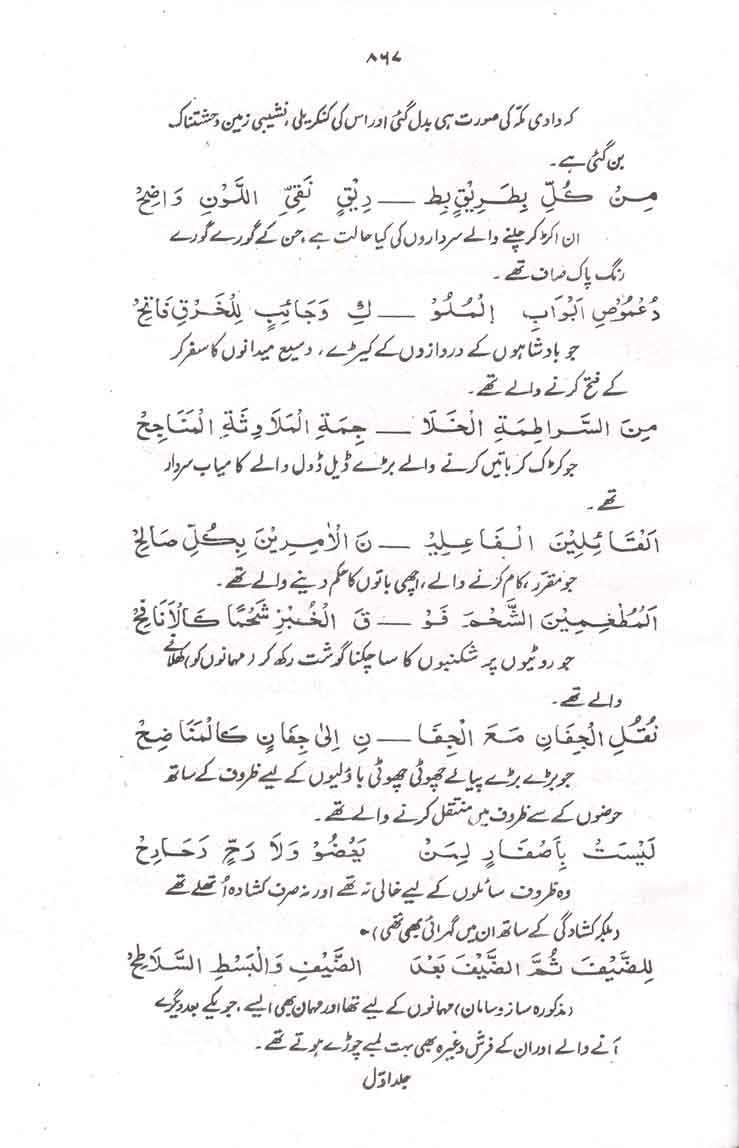 ۸۶۷
کہ وادی مکہ کی صورت ہی بدل گئی اور اس کی کنکریلی، نشیبی زمین وحشتناک
بن گئی ہے۔
مِنْ كُلِّ بِطَرِيْقٍ بِطـ ــ رِيْقٍ نَقِيِّ اللَّوْنِ وَاضِحْ
ان اکڑ کر چلنے والے سرداروں کی کیا حالت ہے، جن کے گورے گورے
رنگ پاک صاف تھے۔
دُعْمُوْصِ اَبْوَابِ الْمُلُوْ ــ كِ وَجَائِبٍ لِلْخَرْقِ فَاتِحْ
جو بادشاہوں کے دروازوں کے کیڑے، وسیع میدانوں کا سفر کر
کے فتح کرنے والے تھے۔
مِنَ السَّرَاطِمَةِ الْخَلَا ــ جِمَةِ الْمَلَاوِثَةِ الْمَنَاجِحْ
جو کڑک کر باتیں کرنے والے بڑے ڈیل ڈول والے کامیاب سردار
تھے۔
اَلْقَائِلِيْنَ الْفَاعِلِيْـ ــ نَ الْاٰمِرِيْنَ بِكُلِّ صَالِحْ
جو مقرر، کام کرنے والے، اچھی باتوں کا حکم دینے والے تھے۔
اَلْمُطْعِمِيْنَ الشَّحْمَ فَوْ ــ قَ الْخُبْزِ شَحْمًا كَالْاَنَافِحْ
جو روٹیوں پر شکنبوں کا سا چکنا گوشت رکھ کر (مہمانوں کو) کھلانے
والے تھے۔
نُقُلِ الْجِفَانِ مَعَ الْجِفَا ــ نِ اِلیٰ جِفَانٍ كَالْمَنَاضِحْ
جو بڑے بڑے پیالے چھوٹی چھوٹی باؤلیوں کے لیے ظروف کے ساتھ
حوضوں کے سے ظروف میں منتقل کرنے والے تھے۔
لَيْسَتْ بِاَصْفَارٍ لِمَنْ يَعْضُوْ وَلَا رَحٍّ رَحَارِحْ
وہ ظروف سائلوں کے لیے خالی نہ تھے اور نہ صرف کشادہ اُتھلے تھے
(بلکہ کشادگی کے ساتھ ان میں گہرائی بھی تھی)۔
لِلضَّيْفِ ثُمَّ الضَّيْفِ بَعْدَ الضَّيْفِ وَالْبَسْطِ السَّلَاطِحْ
(مذکورہ ساز و سامان) مہمانوں کے لیے تھا اور مہمان بھی ایسے، جو یکے بعد دیگرے
آنے والے اور ان کے فرش وغیرہ بھی بہت لمبے چوڑے ہوتے تھے۔
جلد اوّل